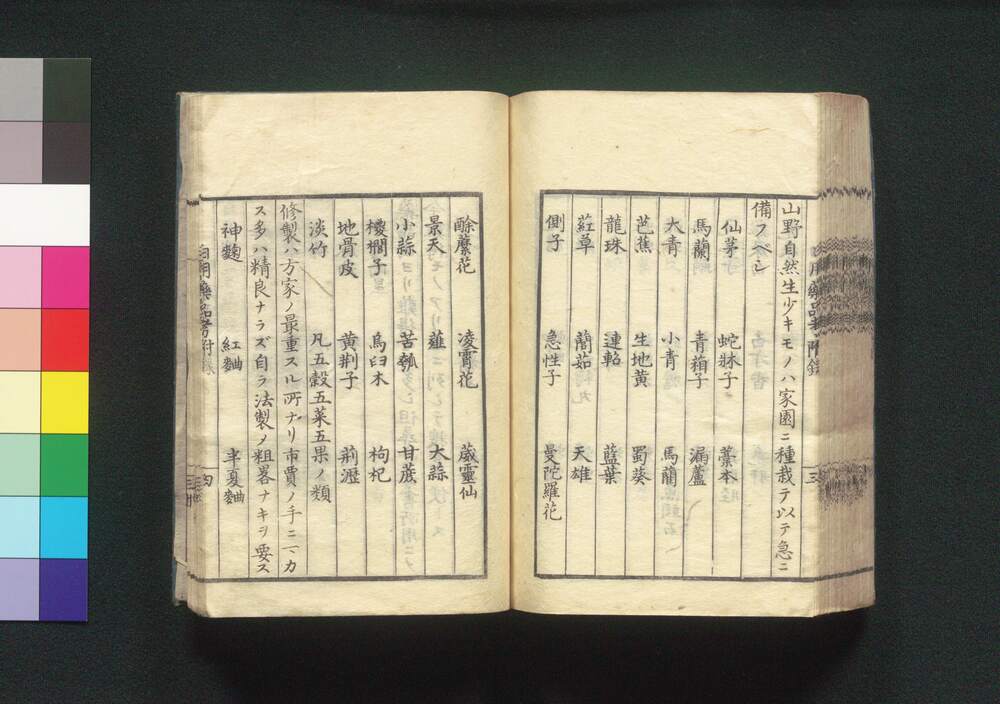 山野自然生少キモノハ家園ニ種栽テ以テ急ニ
備フベシ
仙茅 蛇牀子 藁本
馬蘭 青葙子 漏蘆
大青 小青 馬藺
芭蕉 生地黄 蜀葵
龍珠 連軺 藍葉
葒草 藺茹 天雄
側子 急性子 曼陀羅花
酴蘼花 凌霄花 葳靈仙
景天 薤 大蒜
小蒜 苦瓠 甘蔗
椶櫚子 烏臼木 枸杞
地骨皮 黄荆子 荊瀝
淡竹 凡五穀五菜五果ノ類
修製ハ方家ノ最重スル所ナリ市賈ノ手ニマカ
ス多ハ精良ナラズ自ラ法製メ粗畧ナキヲ要ス
神麴 紅麯 半夏麯
日用藥品考附錄